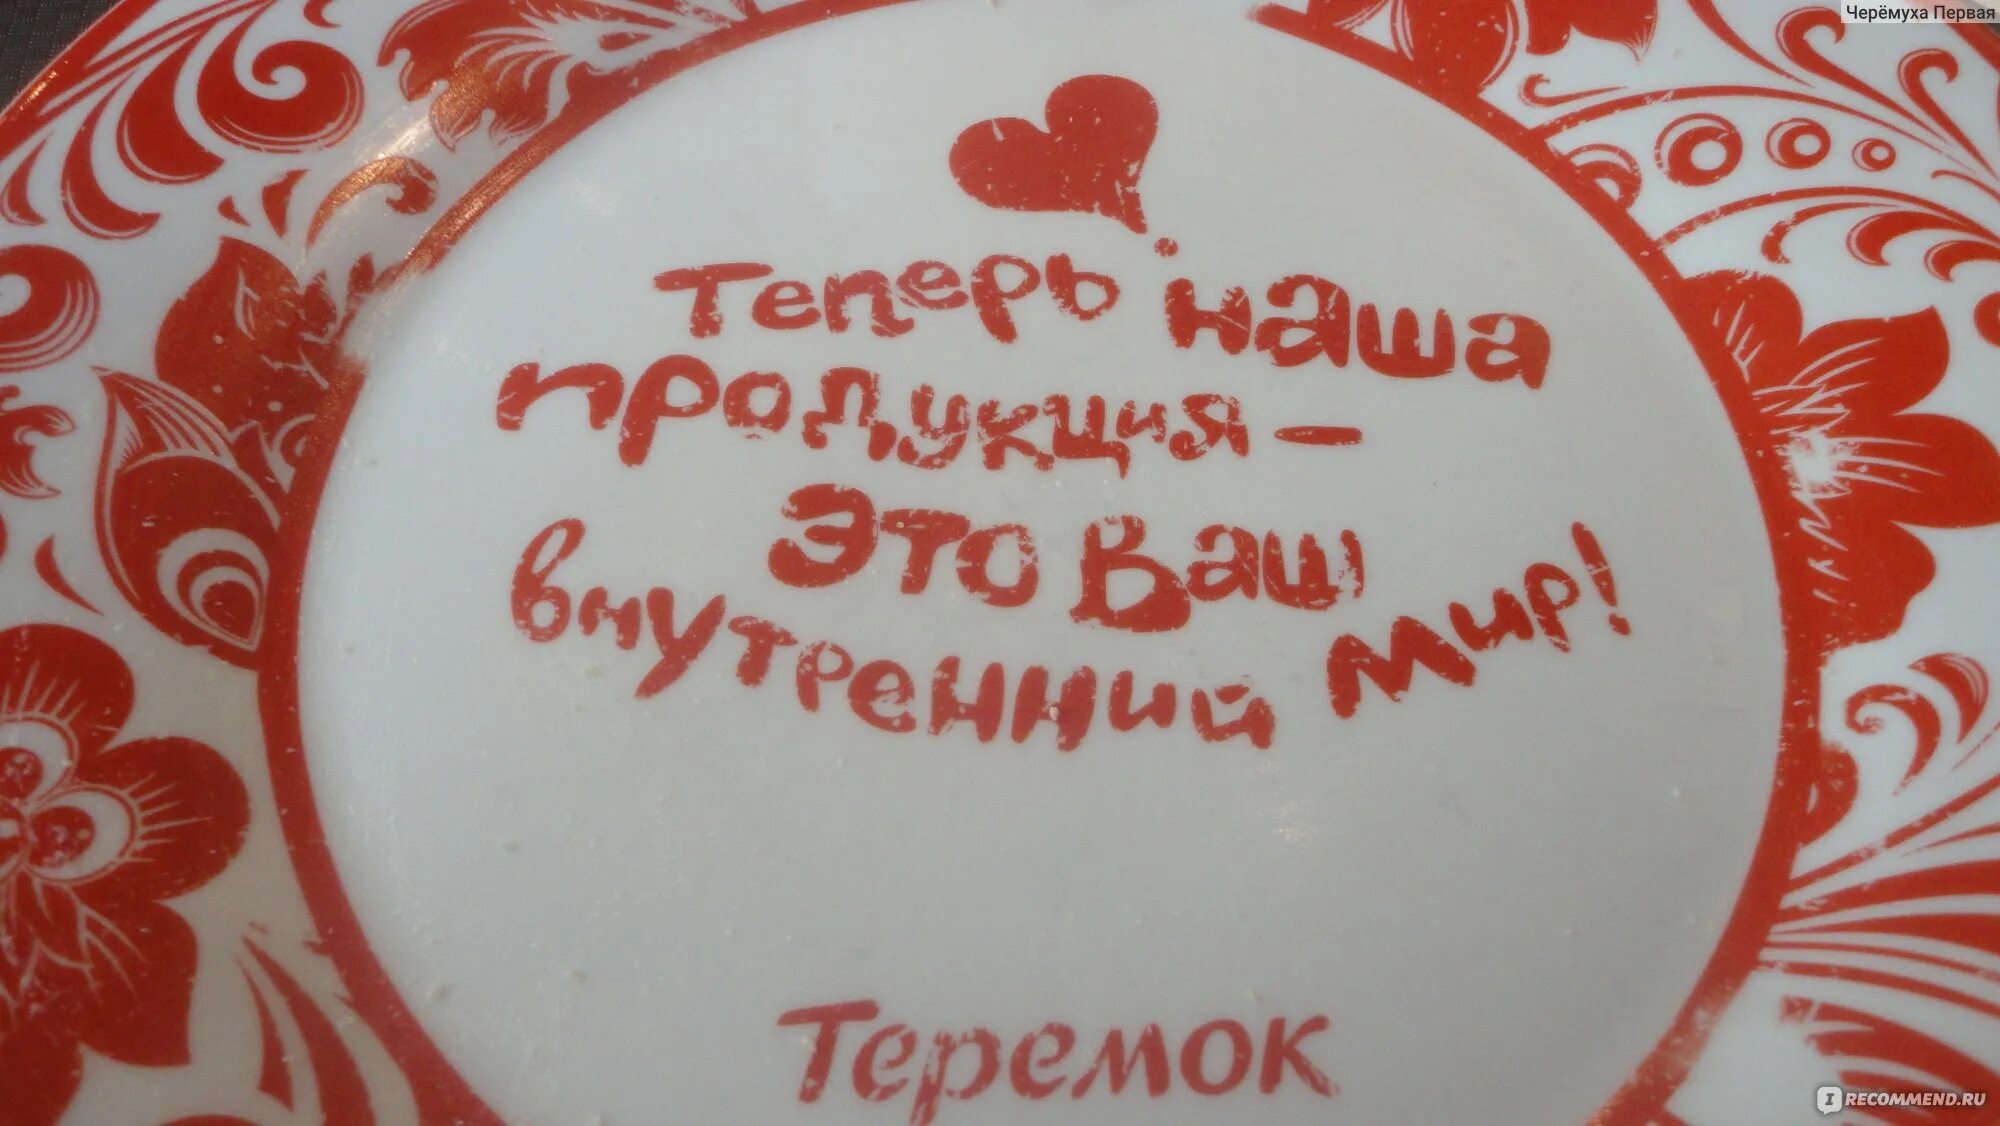 Черёмуха Первая
Теперь наша
продукция –
это Ваш
внутренний мир!
Теремок
I RECOMMEND.RU